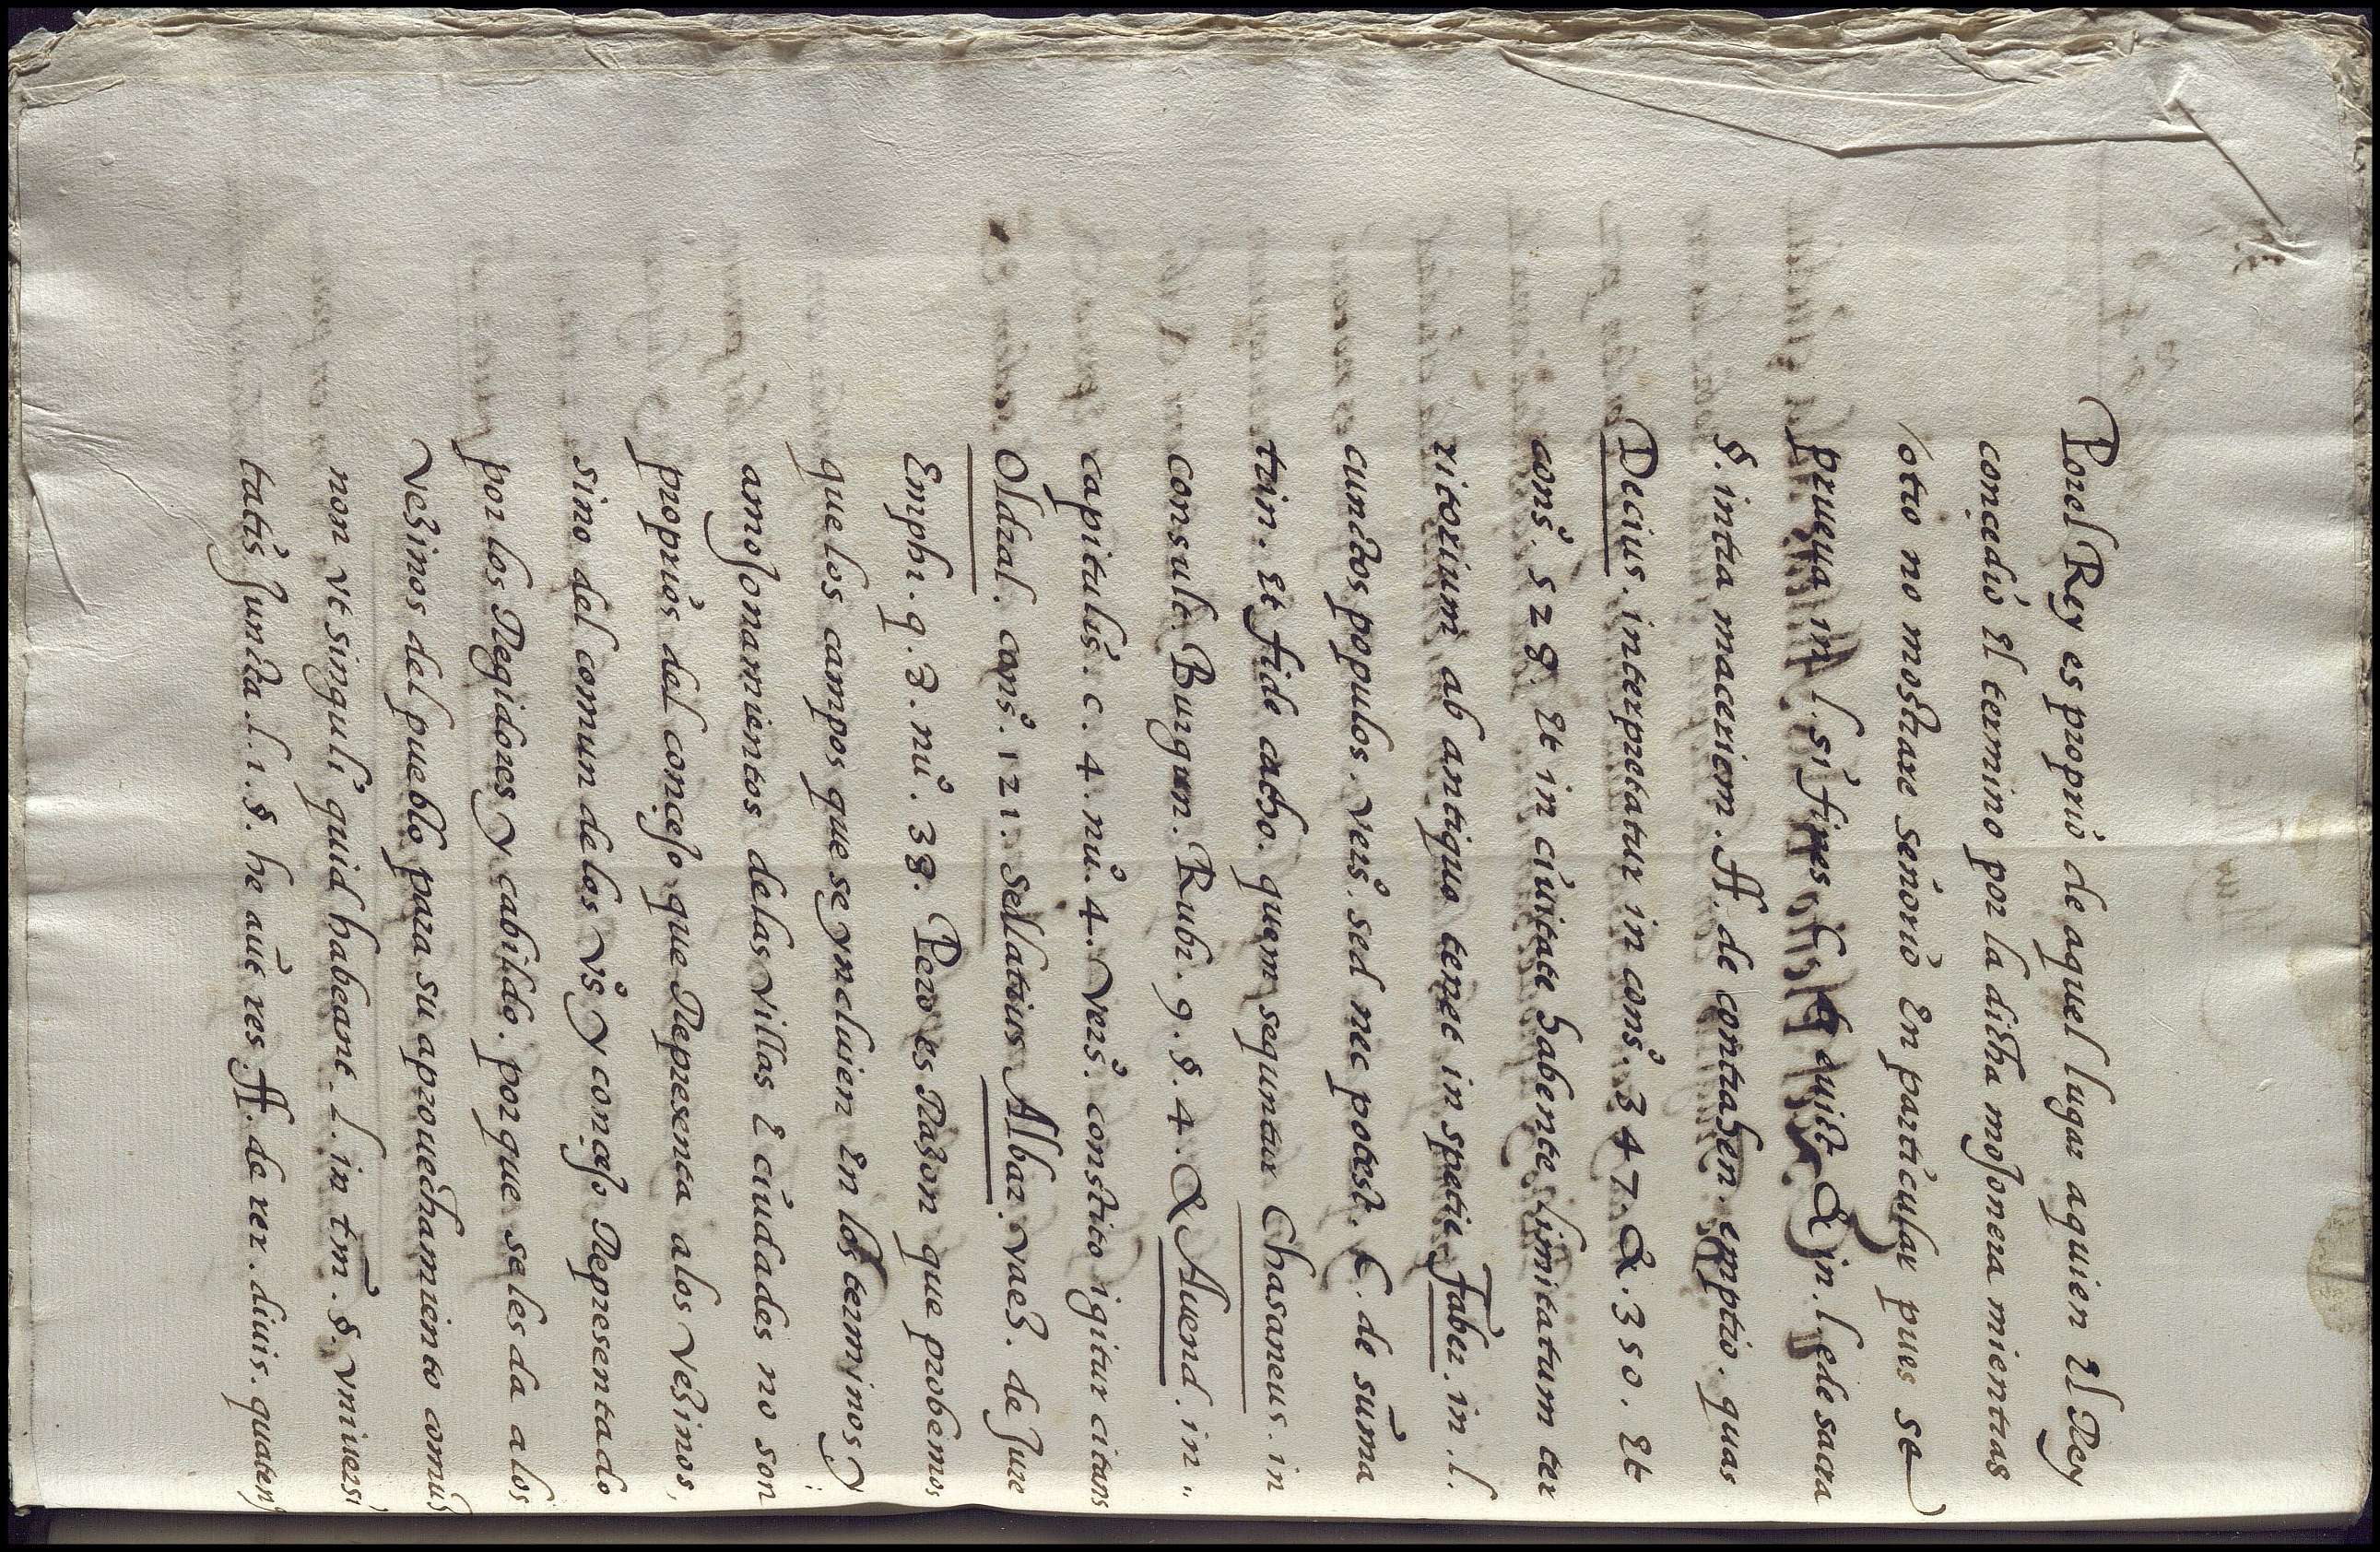 Por el Rey es proprio de aquel lugar a quien El Rey
concedió El termino por la dicha mojonera mientras
otro no mostrare señorio En particular pues se
prueua in l. si fines C. & in l. ede sacra
§. intra maceriem. ff. de contrahen. emptio. quas
Decius. interpretatur in cons. 347. & . 350. Et
cons. 528. Et in ciuitate habente limitatum ter
ritorium ab antiquo tenet in spetie Faber. in . l.
cunctos populos. vers. sed nec potest. C. de sūma
trin. Et fide catho. quem sequntur Chasaneus. in
consuli. Burgun. Rubr. 9. §. 4. & Auend. in
capitulis. c. 4. nu. 4. vers. constito igitur citans
Oldral. cons. 121. Sellatius Albar. vaez. de Jure
Emphi. q. 3. nu. 38. Pero es Razon que probemos
que los campos que se yncluien En los terminos y
amojonamientos delas villas E ciudades no son
proprios del concejo que Representa alos Vezinos,
sino del comun de los vs y concejo Representado
por los Regidores y cabildo. porque se les da alos
Vezinos del pueblo para su aprouechamiento comus
non vt singuli quid habeant. l. in tm. §. vniuersi
tatis Juncta. l. 1. §. he aūt res. ff. de rer. diuis. quatenus